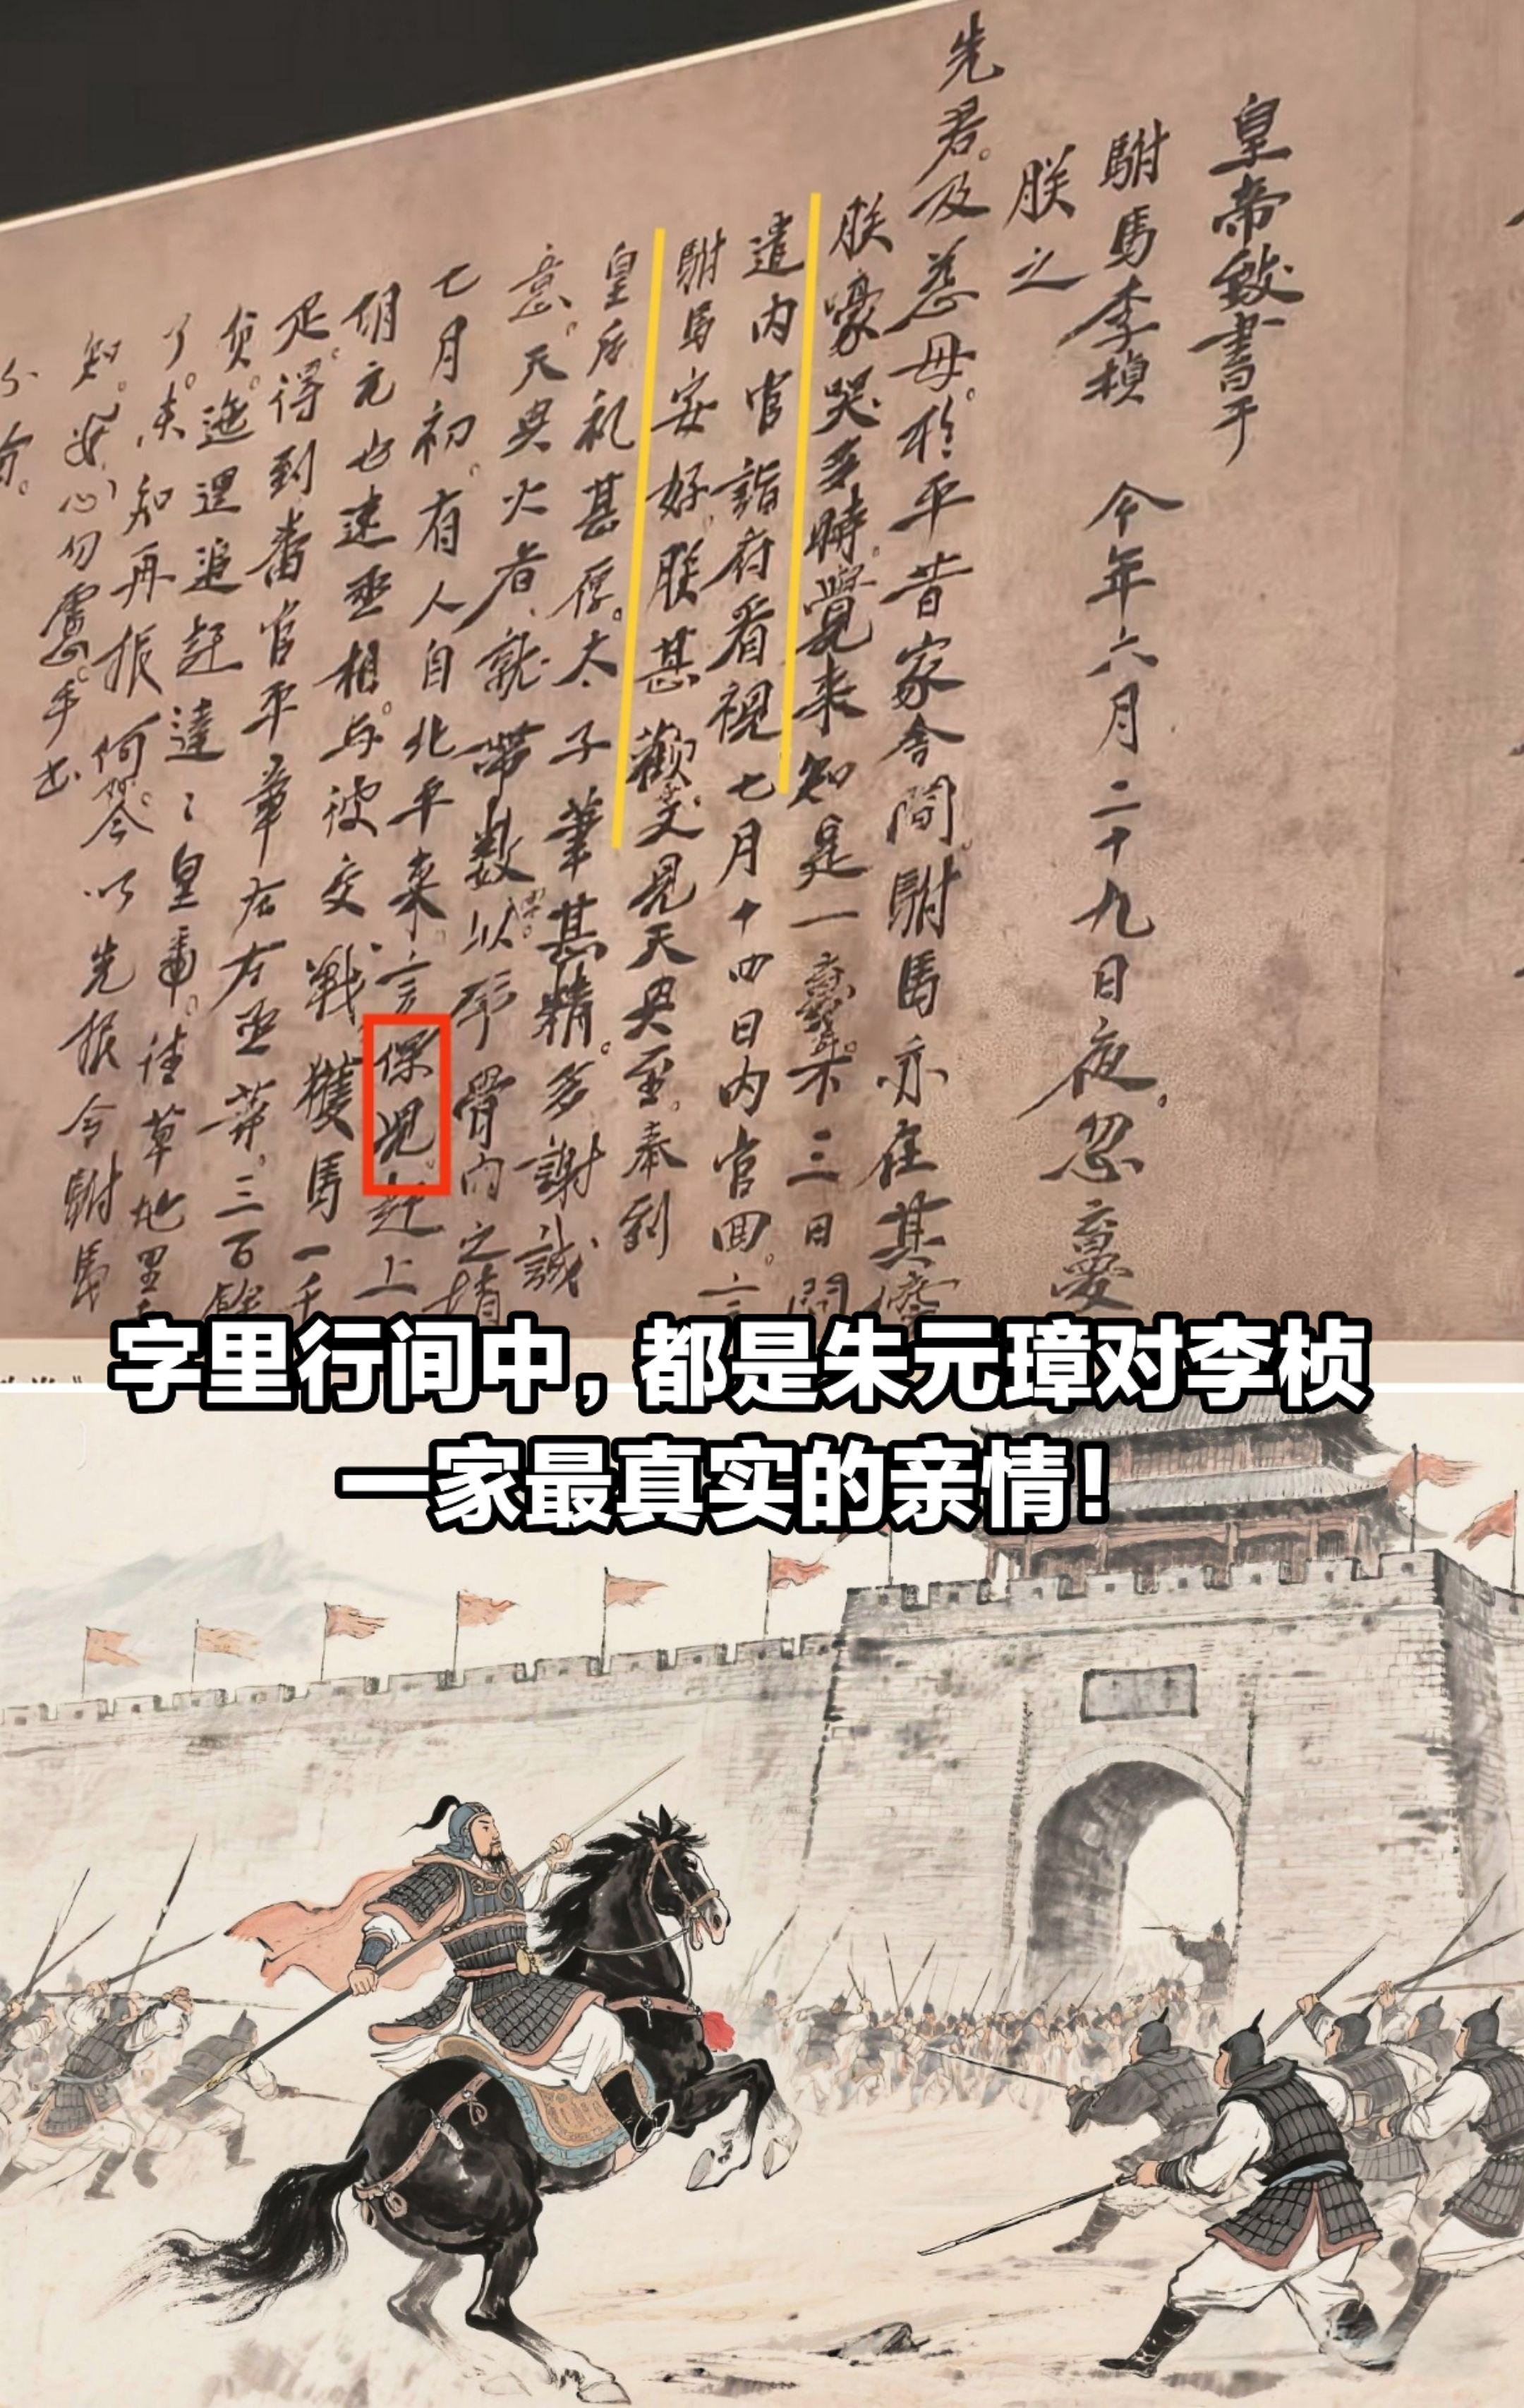 皇帝致書于
駙馬李楨 今年六月二十九日夜。忽憂
朕之
先君。及慈母。於平昔家舍間。駙馬亦在其
朕豪哭多時。覺来知是一 不三日間
遣内官詣府看視七月十四日内官回。言
駙馬安好。朕甚歡。又見天與至。奉到
皇后礼甚厚。太子筆甚精。多謝誠
意。天與火者。就帶数 以 骨肉之情
七月初。有人自北平来。言保児赶上
胡元也速丞相。与彼交戰。獲馬一千
疋。得到番官平章左右丞等。三百餘
員。迤邐追赶達〻皇帝。往草地里
了。未知再振何答。以先振令駙馬
知。安心勿慮。手书
字里行间中，都是朱元璋对李桢
一家最真实的亲情！